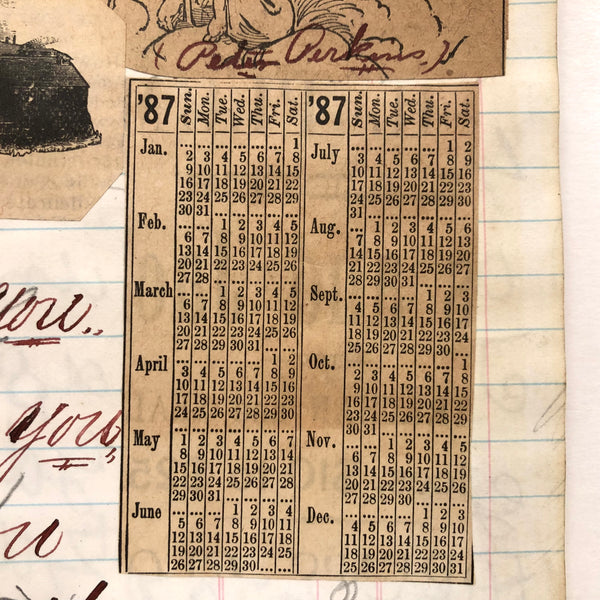 ( Perkins.)
'87 Sun. Mon. Tue. Wed. Thu. Fri. Sat.
Jan. ... ... ... ... ... ... 1
2 3 4 5 6 7 8
9 10 11 12 13 14 15
16 17 18 19 20 21 22
23 24 25 26 27 28 29
30 31 ... ... ... ... ...
Feb. ... ... 1 2 3 4 5
6 7 8 9 10 11 12
13 14 15 16 17 18 19
20 21 22 23 24 25 26
27 28 ... ... ... ... ...
March ... ... 1 2 3 4 5
6 7 8 9 10 11 12
13 14 15 16 17 18 19
20 21 22 23 24 25 26
27 28 29 30 31 ... ...
April ... ... ... ... ... 1 2
3 4 5 6 7 8 9
10 11 12 13 14 15 16
17 18 19 20 21 22 23
24 25 26 27 28 29 30
May 1 2 3 4 5 6 7
8 9 10 11 12 13 14
15 16 17 18 19 20 21
22 23 24 25 26 27 28
29 30 31 ... ... ... ...
June ... ... ... 1 2 3 4
5 6 7 8 9 10 11
12 13 14 15 16 17 18
19 20 21 22 23 24 25
26 27 28 29 30 ... ...
'87 Sun. Mon. Tue. Wed. Thu. Fri. Sat.
July ... ... ... ... ... 1 2
3 4 5 6 7 8 9
10 11 12 13 14 15 16
17 18 19 20 21 22 23
24 25 26 27 28 29 30
31 ... ... ... ... ... ...
Aug. ... 1 2 3 4 5 6
7 8 9 10 11 12 13
14 15 16 17 18 19 20
21 22 23 24 25 26 27
28 29 30 31 ... ... ...
Sept. ... ... ... ... 1 2 3
4 5 6 7 8 9 10
11 12 13 14 15 16 17
18 19 20 21 22 23 24
25 26 27 28 29 30 ...
Oct. ... ... ... ... ... ... 1
2 3 4 5 6 7 8
9 10 11 12 13 14 15
16 17 18 19 20 21 22
23 24 25 26 27 28 29
30 31 ... ... ... ... ...
Nov. ... ... 1 2 3 4 5
6 7 8 9 10 11 12
13 14 15 16 17 18 19
20 21 22 23 24 25 26
27 28 29 30 ... ... ...
Dec. ... ... ... ... 1 2 3
4 5 6 7 8 9 10
11 12 13 14 15 16 17
18 19 20 21 22 23 24
25 26 27 28 29 30 31
you,